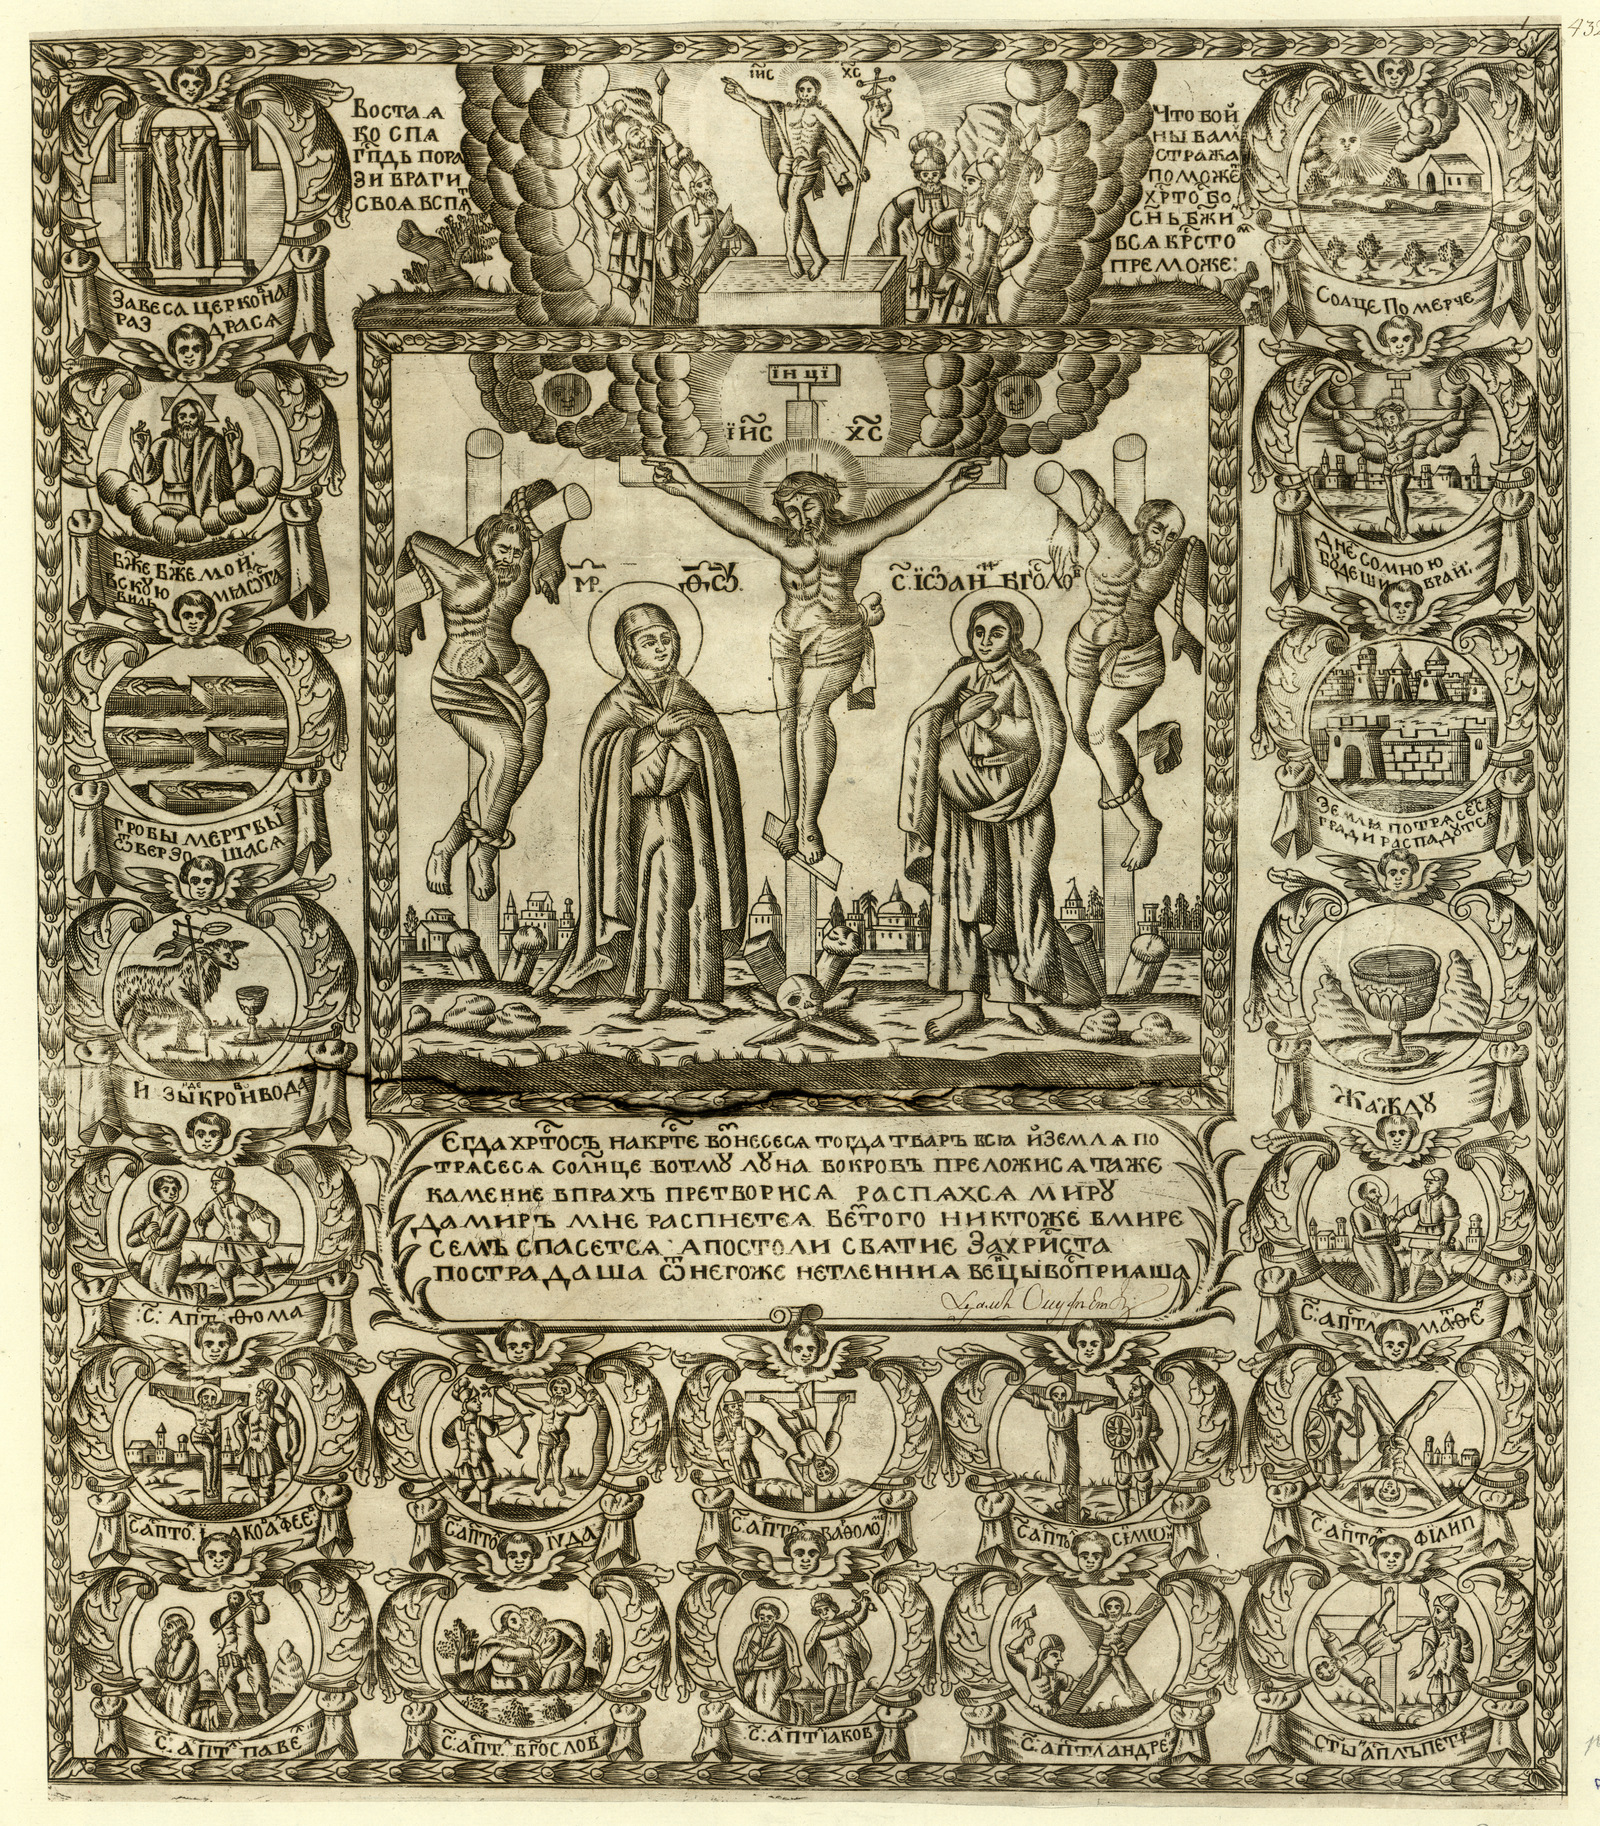 І҃ИС Х҃С
ВОСТА Ѧ
КО СПѦ
Г҃ПДЬ ПОРА
ЗИ ВРАГИ
СВОѦ ВСПѦТ
ЧТО ВОЙ
НЫ ВАМ
СТРАЖА
ПОМОЖЕ
ХР҃ТО БО
С҃НЬ Б҃ЖИ
ВСѦ КР҃СТОМ
ПРЕМОЖЕ:
ЗАВЕСА ЦЕРКОВНА
РАЗ ДРАСѦ
СОЛЦЕ ПОМЕРЧЕ
ІН ЦІ
І҃ИС Х҃С
М҃Р Ѳ҃СУ.
С: ІѠАН Б҃ГСЛОВ
Б҃ЖЕ Б҃ЖЕ МОЙ:
ВСКУЮ МѦ ѠСТА
ВИЛЬ
ДНЕ СО МНОЮ
БУДЕШИ ВРАЙ:
ГРОБЫ МЕРТВЫХ
ѾВЕРЗО ШАСѦ
ЗЕМЛѦ ПОТРѦСЕСѦ
ГРАДИ РАСПАДУТСѦ
И ЗЫДЕ КРОВ И ВОДА
ЖАЖДУ
ЕГДА ХР҃ТОСЪ НА КР҃ТЕ ВОЗНЕСЕСѦ ТОГДА ТВАРЬ ВСѦ И ЗЕМЛѦ ПО
ТРѦСЕСѦ СОЛНЦЕ ВО ТМУ ЛУНА ВО КРОВЪ ПРЕЛОЖИСѦ ТАЖЕ
КАМЕНИЕ В ПРАХЪ ПРЕТВОРИСѦ РАСПѦХСѦ МИРУ
ДА МИРЪ МНЕ РАСПНЕТСѦ БЕС ТОГО НИКТОЖЕ В МИРЕ
СЕМЪ СПАСЕТСѦ: АПОСТОЛИ СВѦТИЕ ЗА ХРИСТА
ПОСТРАДАША Ѿ НЕГОЖЕ НЕТЛЕННИѦ ВЕНЦЫ ВОСПРИѦША
С: АПТ: ѲОМА
С: АПТЛ МАТѲЕ
С: АПТО: ІАКО АЛФЕЕ
С: АПТО ІУДА
С: АПТО ВАѲОЛО
С: АПТО СІМѠ
С: АПТО ФІЛИП
С: АПТ: ПАВЕ
С: АПТ: БГОСЛОВ
С: АПТ ІАКОВ
С: АПТЛ АНДРЕ
СТЫ АПЛЪ ПЕТР